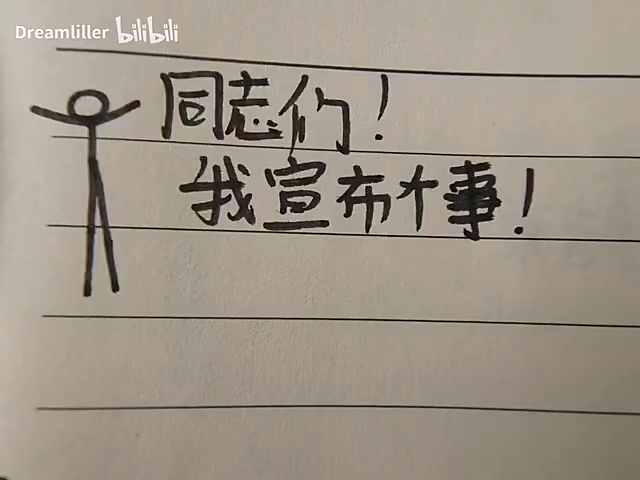 Dreamliller bilibili
同志们!
我宣布个事!